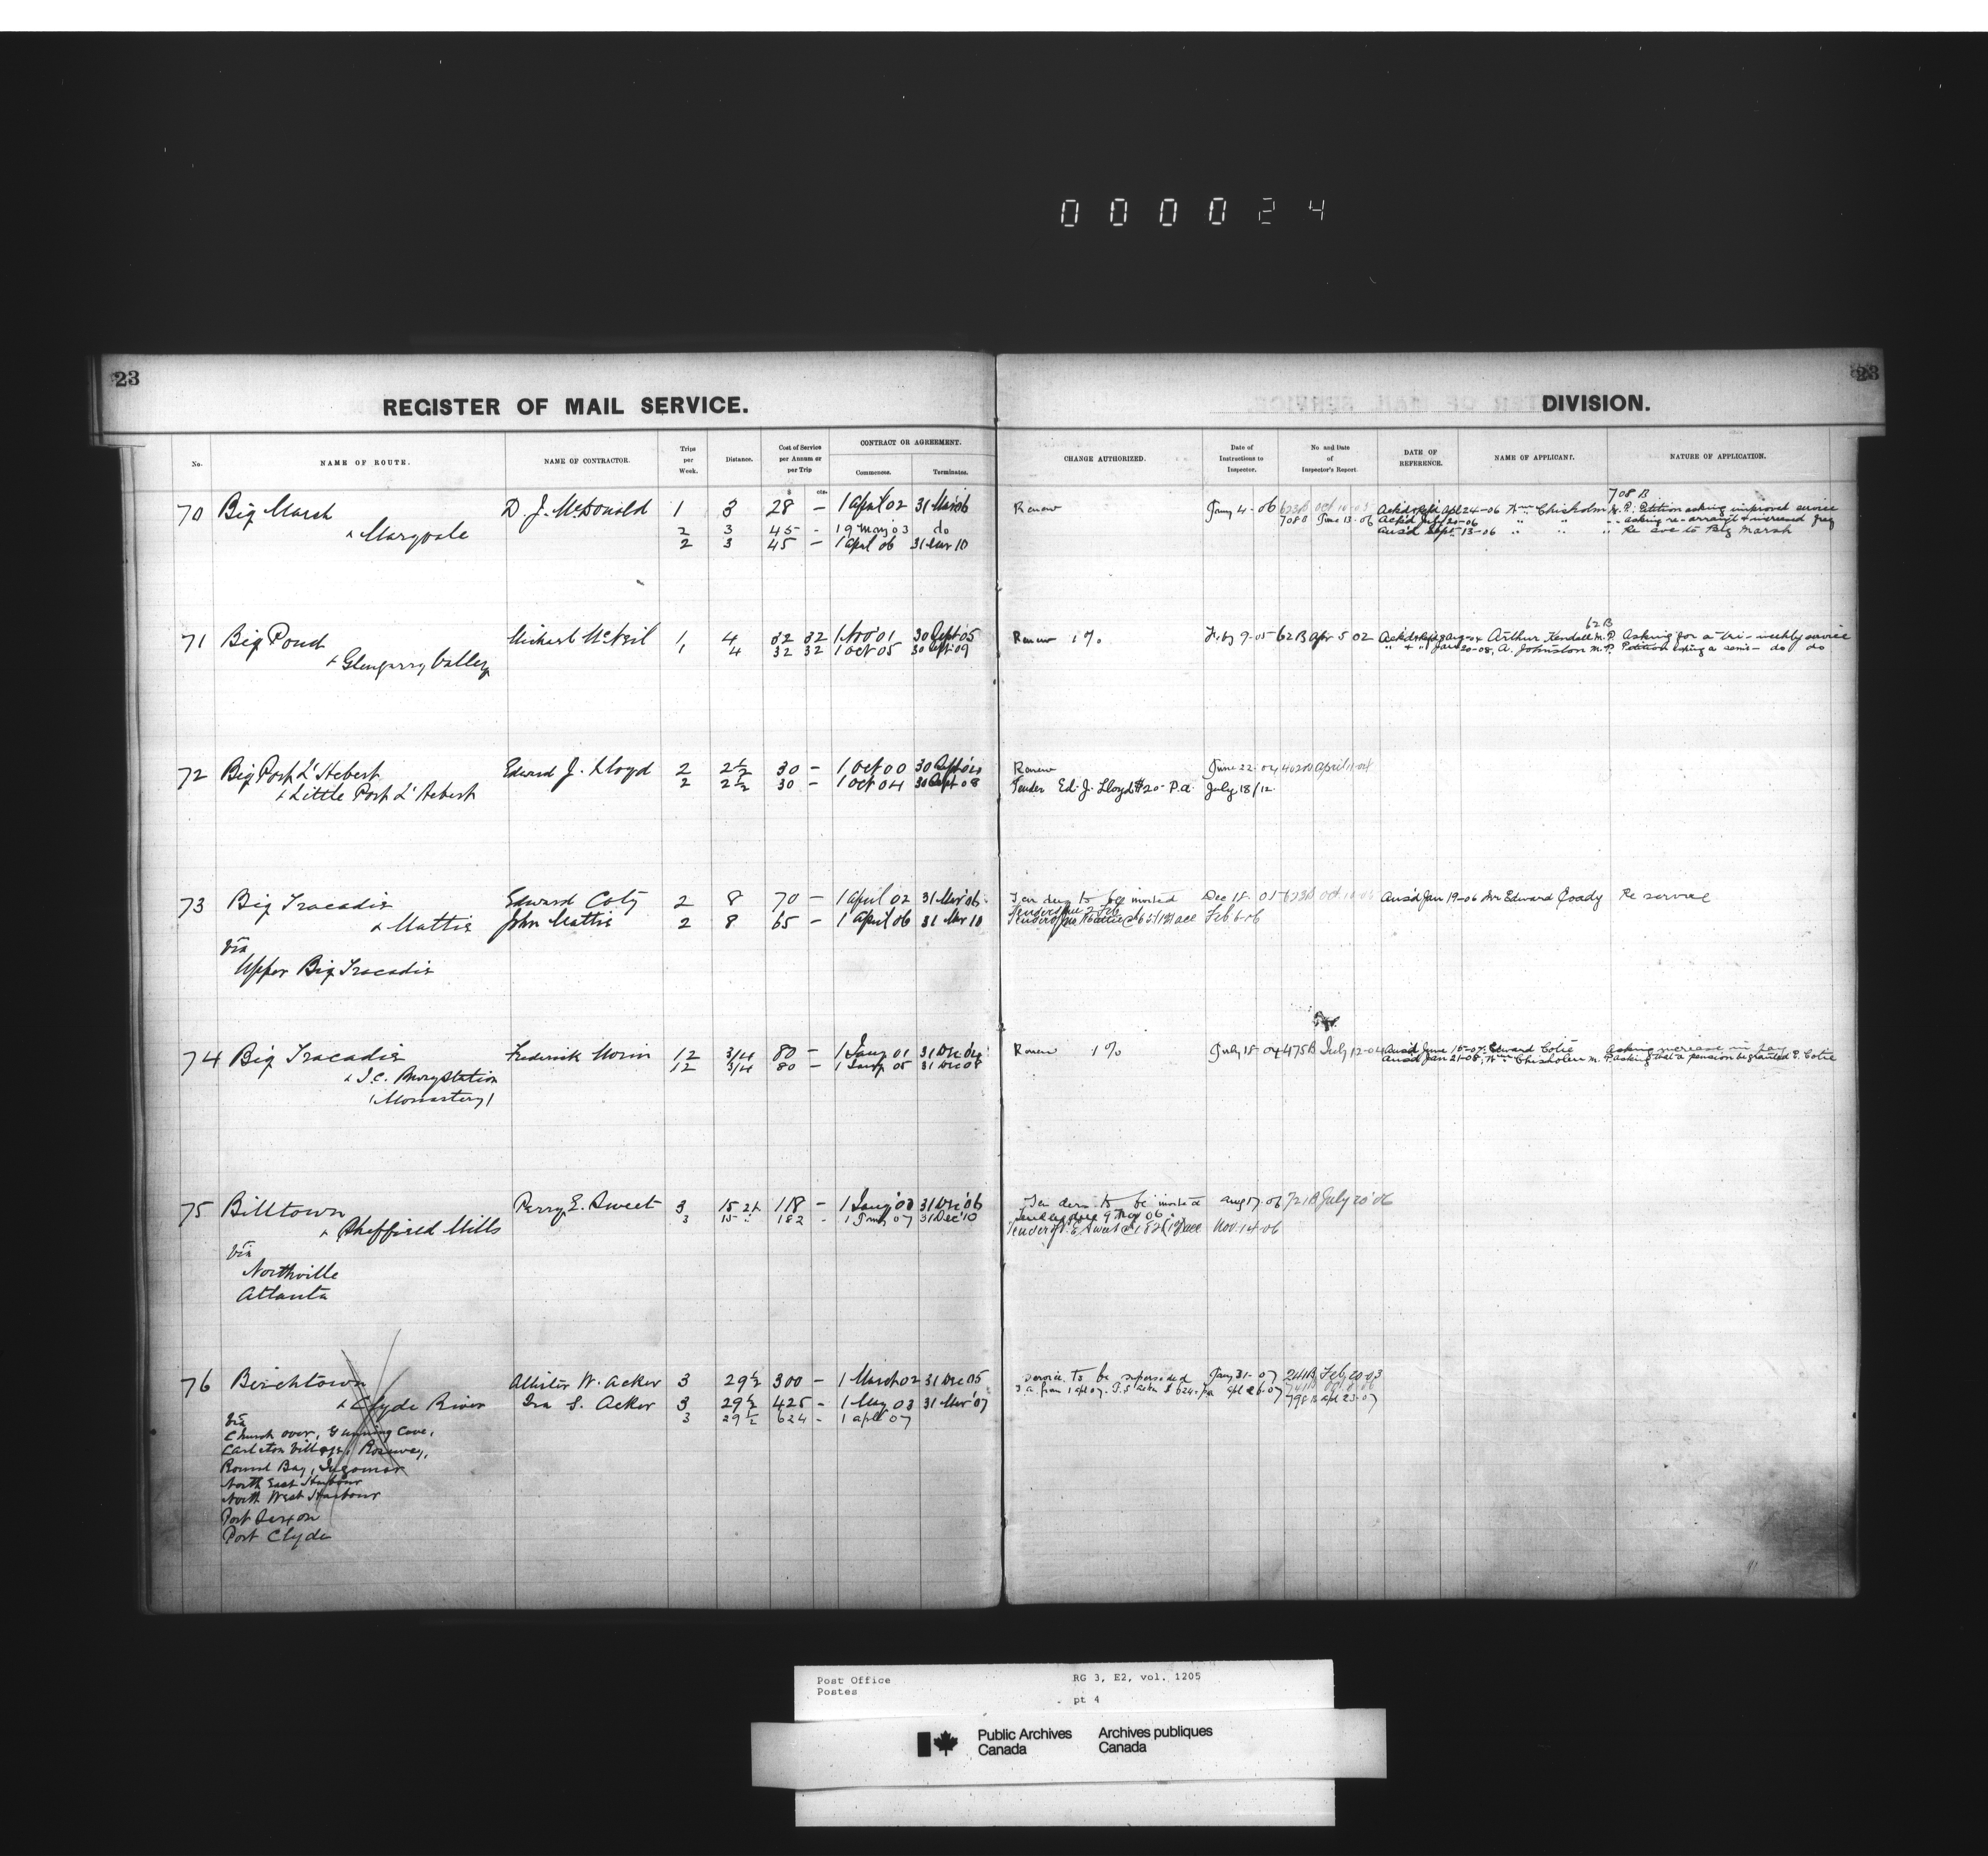 000024
23
23
REGISTER OF MAIL SERVICE.
DIVISION.
No.
NAME OF ROUTE.
NAME OF CONTRACTOR.
Trips per Week.
Distance.
Cost of Service per Annum or per Trip
CONTRACT OR AGREEMENT.
Commences.
Terminates.
CHANGE AUTHORIZED.
Date of Instructions to Inspector.
No. and Date of Inspector's Report.
DATE OF REFERENCE.
NAME OF APPLICANT.
NATURE OF APPLICATION.
$ cts.
708 B
70 Big Marsh D. J. McDonald 1 3 28 — 1 April 02 31 Mar 06 Renew Jany 4-06 623B Oct 10-05 Ackd & Refd Apl 24-06 Wm Chisholm M.P. Petition asking improved service
& Maryvale 2 3 45 - 19 May 03 do 708B June 13-06 Ackd July 20-06 " " " asking re-arrangt & increased freq
2 3 45 — 1 April 06 31 Mar 10 Ansd Sept 13-06 " " " Re svc to Big Marsh
62 B
71 Big Pond Michael McNeil 1 4 32 32 1 Nov 01 30 Sept 05 Renew 1% Feby 9-05 62B Apr 5 02 Arthur Kendall M.P. Asking for a tri-weekly service
& Glengarry Valley 1 4 32 32 1 Oct 05 30 Sept 09 " & " Jan 20-08, A. Johnston M.P. Petition asking a semi- do do
72 Big Port L'Hebert Edward J. Lloyd 2 2½ 30 — 1 Oct 00 30 Sept 04 Renew June 22-04 402B April 11-04
& Little Port L'Hebert 2 2½ 30 — 1 Oct 04 30 Sept 08 Tender Ed. J. Lloyd $20- P.a. July 18/12
73 Big Tracadie Edward Coty 2 8 70 — 1 April 02 31 Mar 06 Tenders to be invited Dec 18-05 623B Oct 10-05 Ansd Jan 19-06 Mr Edward Coady Re service
Tenders due 2 Feb
& Mattie John Mattie 2 8 65 — 1 April 06 31 Mar 10 Tender Jno Mattie @ 65 (12) acc Feb 6-06
Via
Upper Big Tracadie
74 Big Tracadie Frederick Morin 12 3/4 80 — 1 Jany 01 31 Dec 04 Renew 1% July 18-04 475B July 12-04 Ansd June 15-07 Edward Cotie Asking increase in pay
& I.C. Rwy Station 12 3/4 80 — 1 Jany 05 31 Dec 08 Ansd Jan 21-08, Wm Chisholm M.P. asking that a pension be granted E. Cotie
(Monastery)
75 Billtown Perry E. Sweet 3 15 118 — 1 Jany 03 31 Dec 06 Tenders to be invited Aug 17-06 721B July 20 06
& Sheffield Mills 3 15 182 - 1 Jany 07 31 Dec 10 Tenders due 9 Nov 06
Tender P. E. Sweet @ 182 acc Nov. 14-06
Via
Northville
Atlanta
76 Birchtown Allister W. Acker 3 29½ 300 — 1 March 02 31 Dec 05 Service to be superseded Jany 31-07 241B Feby 20-03
& Clyde River Ira S. Acker 3 29½ 425 — 1 May 03 31 Mar 07 S.a. from 1 apl 07. I.S. Acker $624. pa Apl 26-07
Via 3 29½ 624 - 1 April 07 798 B Apl 23-07
Church over, Gunning Cove,
Carleton Village, Roseway,
Round Bay, Ingomar
North East Harbour
North West Harbour
Port Saxon
Port Clyde
Post Office
Postes
RG 3, E2, vol. 1205
pt 4
Public Archives Canada
Archives publiques Canada